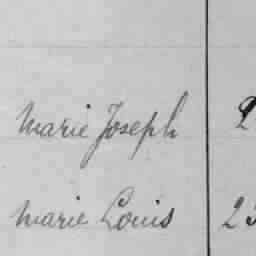 Marie Joseph 2
Marie Louis 23